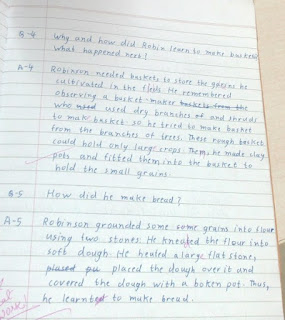 Q-4 Why and how did Robin learn to make baskets
What happened next?
A-4 Robinson needed baskets to store the grains he
cultivated in the fields. He remembered
observing a basket-maker baskets from the
who used dry branches of and shreds
to make basket so he tried to make basket
from the branches of trees. These rough basket
could hold only large crops. Then, he made clay
pots and fitted them into the basket to
hold the small grains.
Q-5 How did he make bread?
A-5 Robinson grounded some some grains into flour
using two stones. He kneaded the flour into
soft dough. He heated a large flat stone,
placed placed the dough over it and
covered the dough with a boken pot. Thus,
he learnt to make bread.